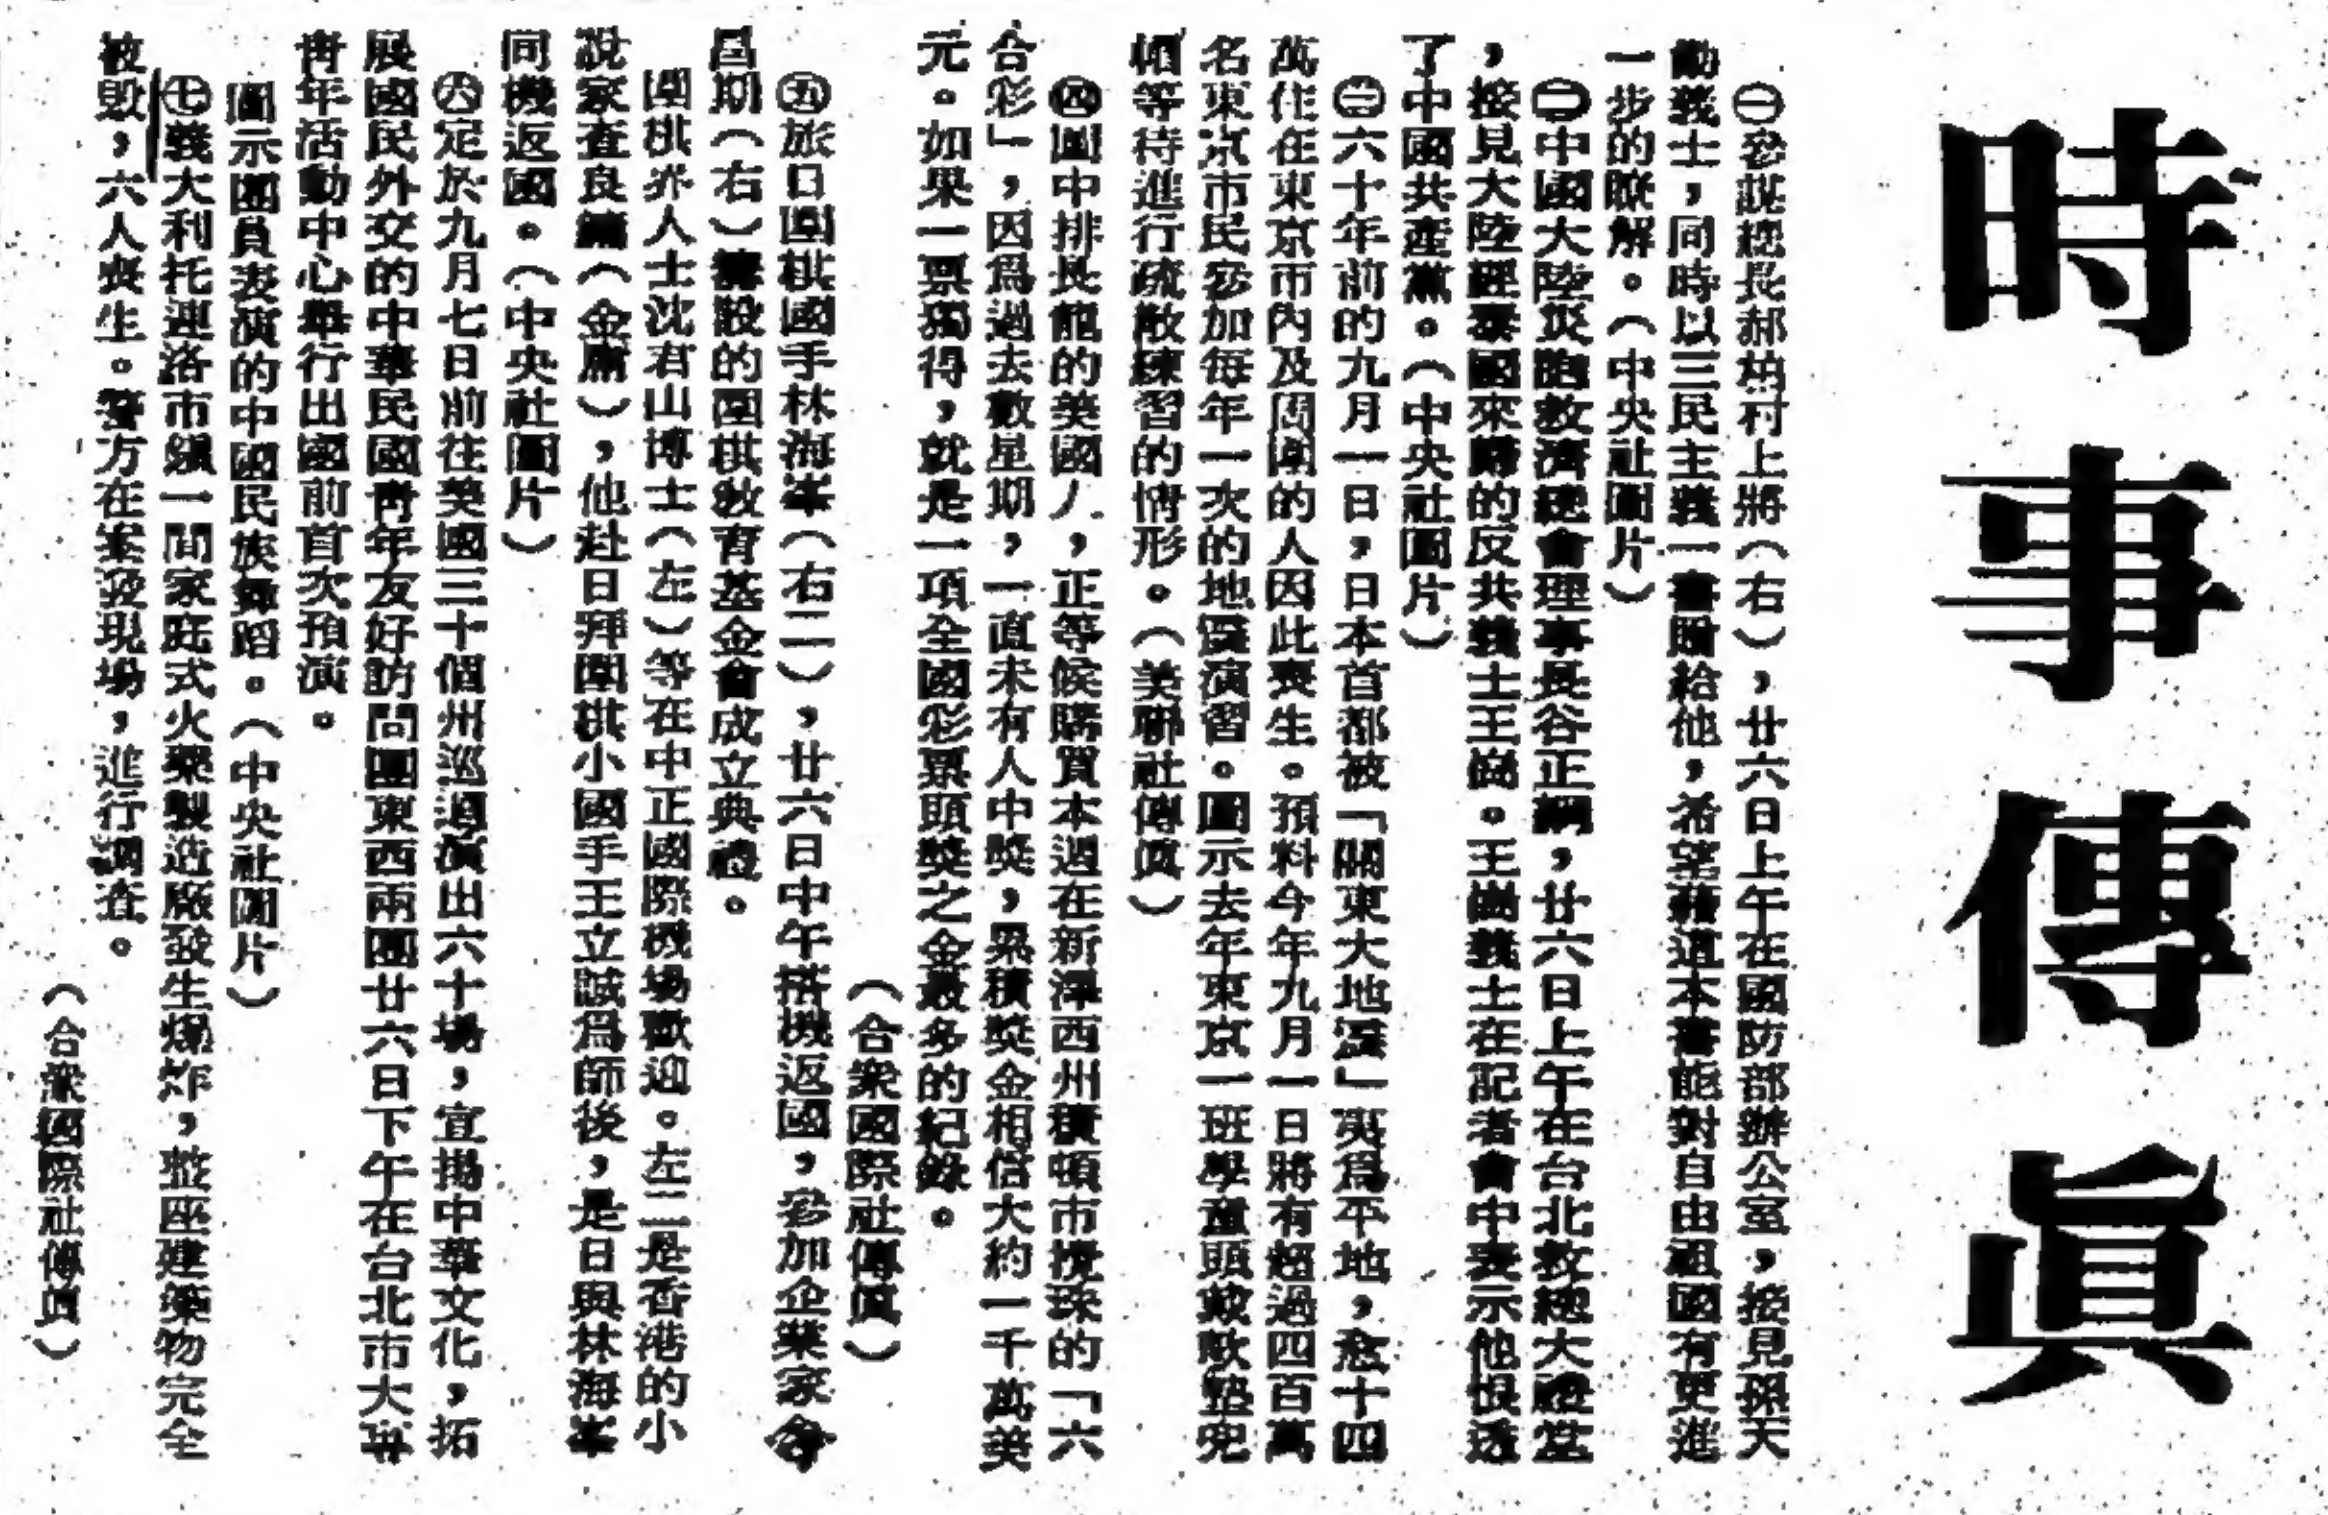 時事傳眞
㊀參謀總長郝柏村上將(右),廿六日上午在國防部辦公室,接見孫天
勤義士,同時以三民主義一書贈給他,希望藉這本書能對自由祖國有更進
一步的瞭解。(中央社圖片)
㊁中國大陸災胞救濟總會理事長谷正綱,廿六日上午在台北救總大禮堂
,接見大陸經泰國來歸的反共義士王。王義士在記者會中表示他恨透
了中國共產黨。(中央社圖片)
㊂六十年前的九月一日,日本首都被「關東大地震」夷爲平地,愈十四
萬住在東京市內及周圍的人因此喪生。預料今年九月一日將有超過四百萬
名東京市民參加每年一次的地震演習。圖示去年東京一班學童頭戴軟墊兜
帽等待進行疏散練習的情形。(美聯社傳眞)
㊃圖中排長龍的美國人,正等候購買本週在新澤西州積頓市攪珠的「六
合彩」,因爲過去數星期,一直未有人中獎,累積獎金相信大約一千萬美
元。如果一票獨得,就是一項全國彩票頭獎之金最多的紀錄。
(合衆國際社傳眞)
㊄旅日圍棋國手林海峯(右二),廿六日中午搭機返國,參加企業家翁
昌期(右)籌設的圍棋敎育基金會成立典禮。
圍棋界人士沈君山博士(左)等在中正國際機場歡迎。左二是香港的小
說家查良鏞(金庸),他赴日拜圍棋小國手王立誠爲師後,是日與林海峯
同機返國。(中央社圖片)
㊅定於九月七日前往美國三十個州巡迴演出六十場,宣揚中華文化,拓
展國民外交的中華民國靑年友好訪問團東西兩團廿六日下午在台北市大專
靑年活動中心舉行出國前首次預演。
圖示團員表演的中國民族舞蹈。(中央社圖片)
㊆義大利托連洛市鎭一間家庭式火藥製造廠發生爆炸,整座建築物完全
被毀,六人喪生。警方在案發現場,進行調查。
(合衆國際社傳眞)